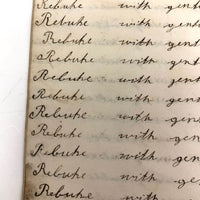 Rebuke with gent
Rebuke with gent
Rebuke with gent
Rebuke with gent
Rebuke with gent
Rebuke with gent
Rebuke with gen
Rebuke with gen
Rebuke with gen
Rebuke with ge
Rebuke with ge